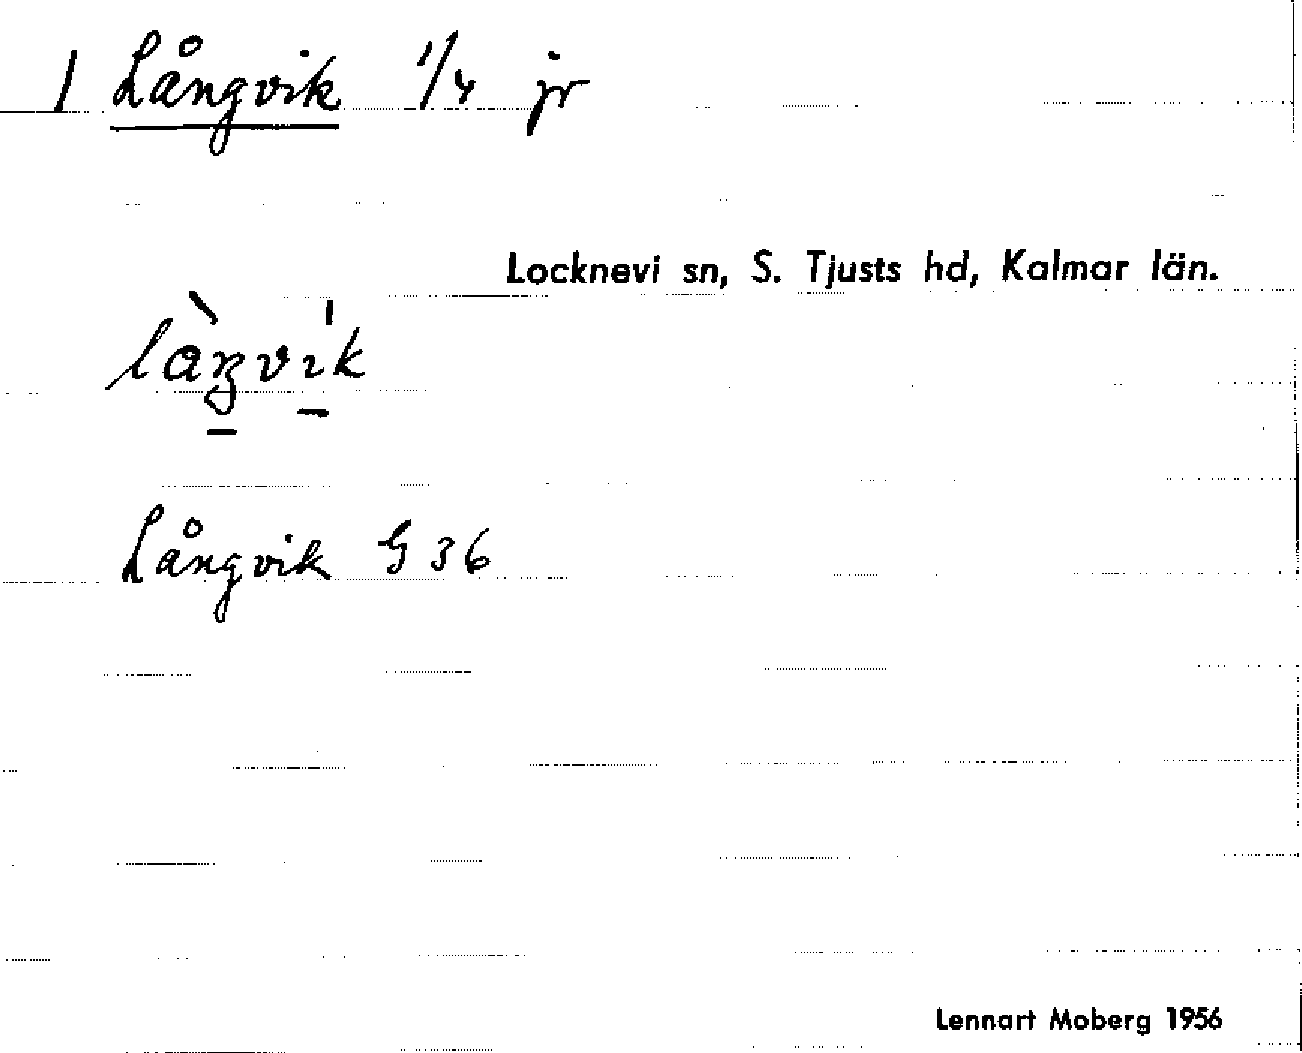 1 Långvik 1/4 jr
Locknevi sn, S. Tjusts hd, Kalmar län.
Långvik G 36
Lennart Moberg 1956